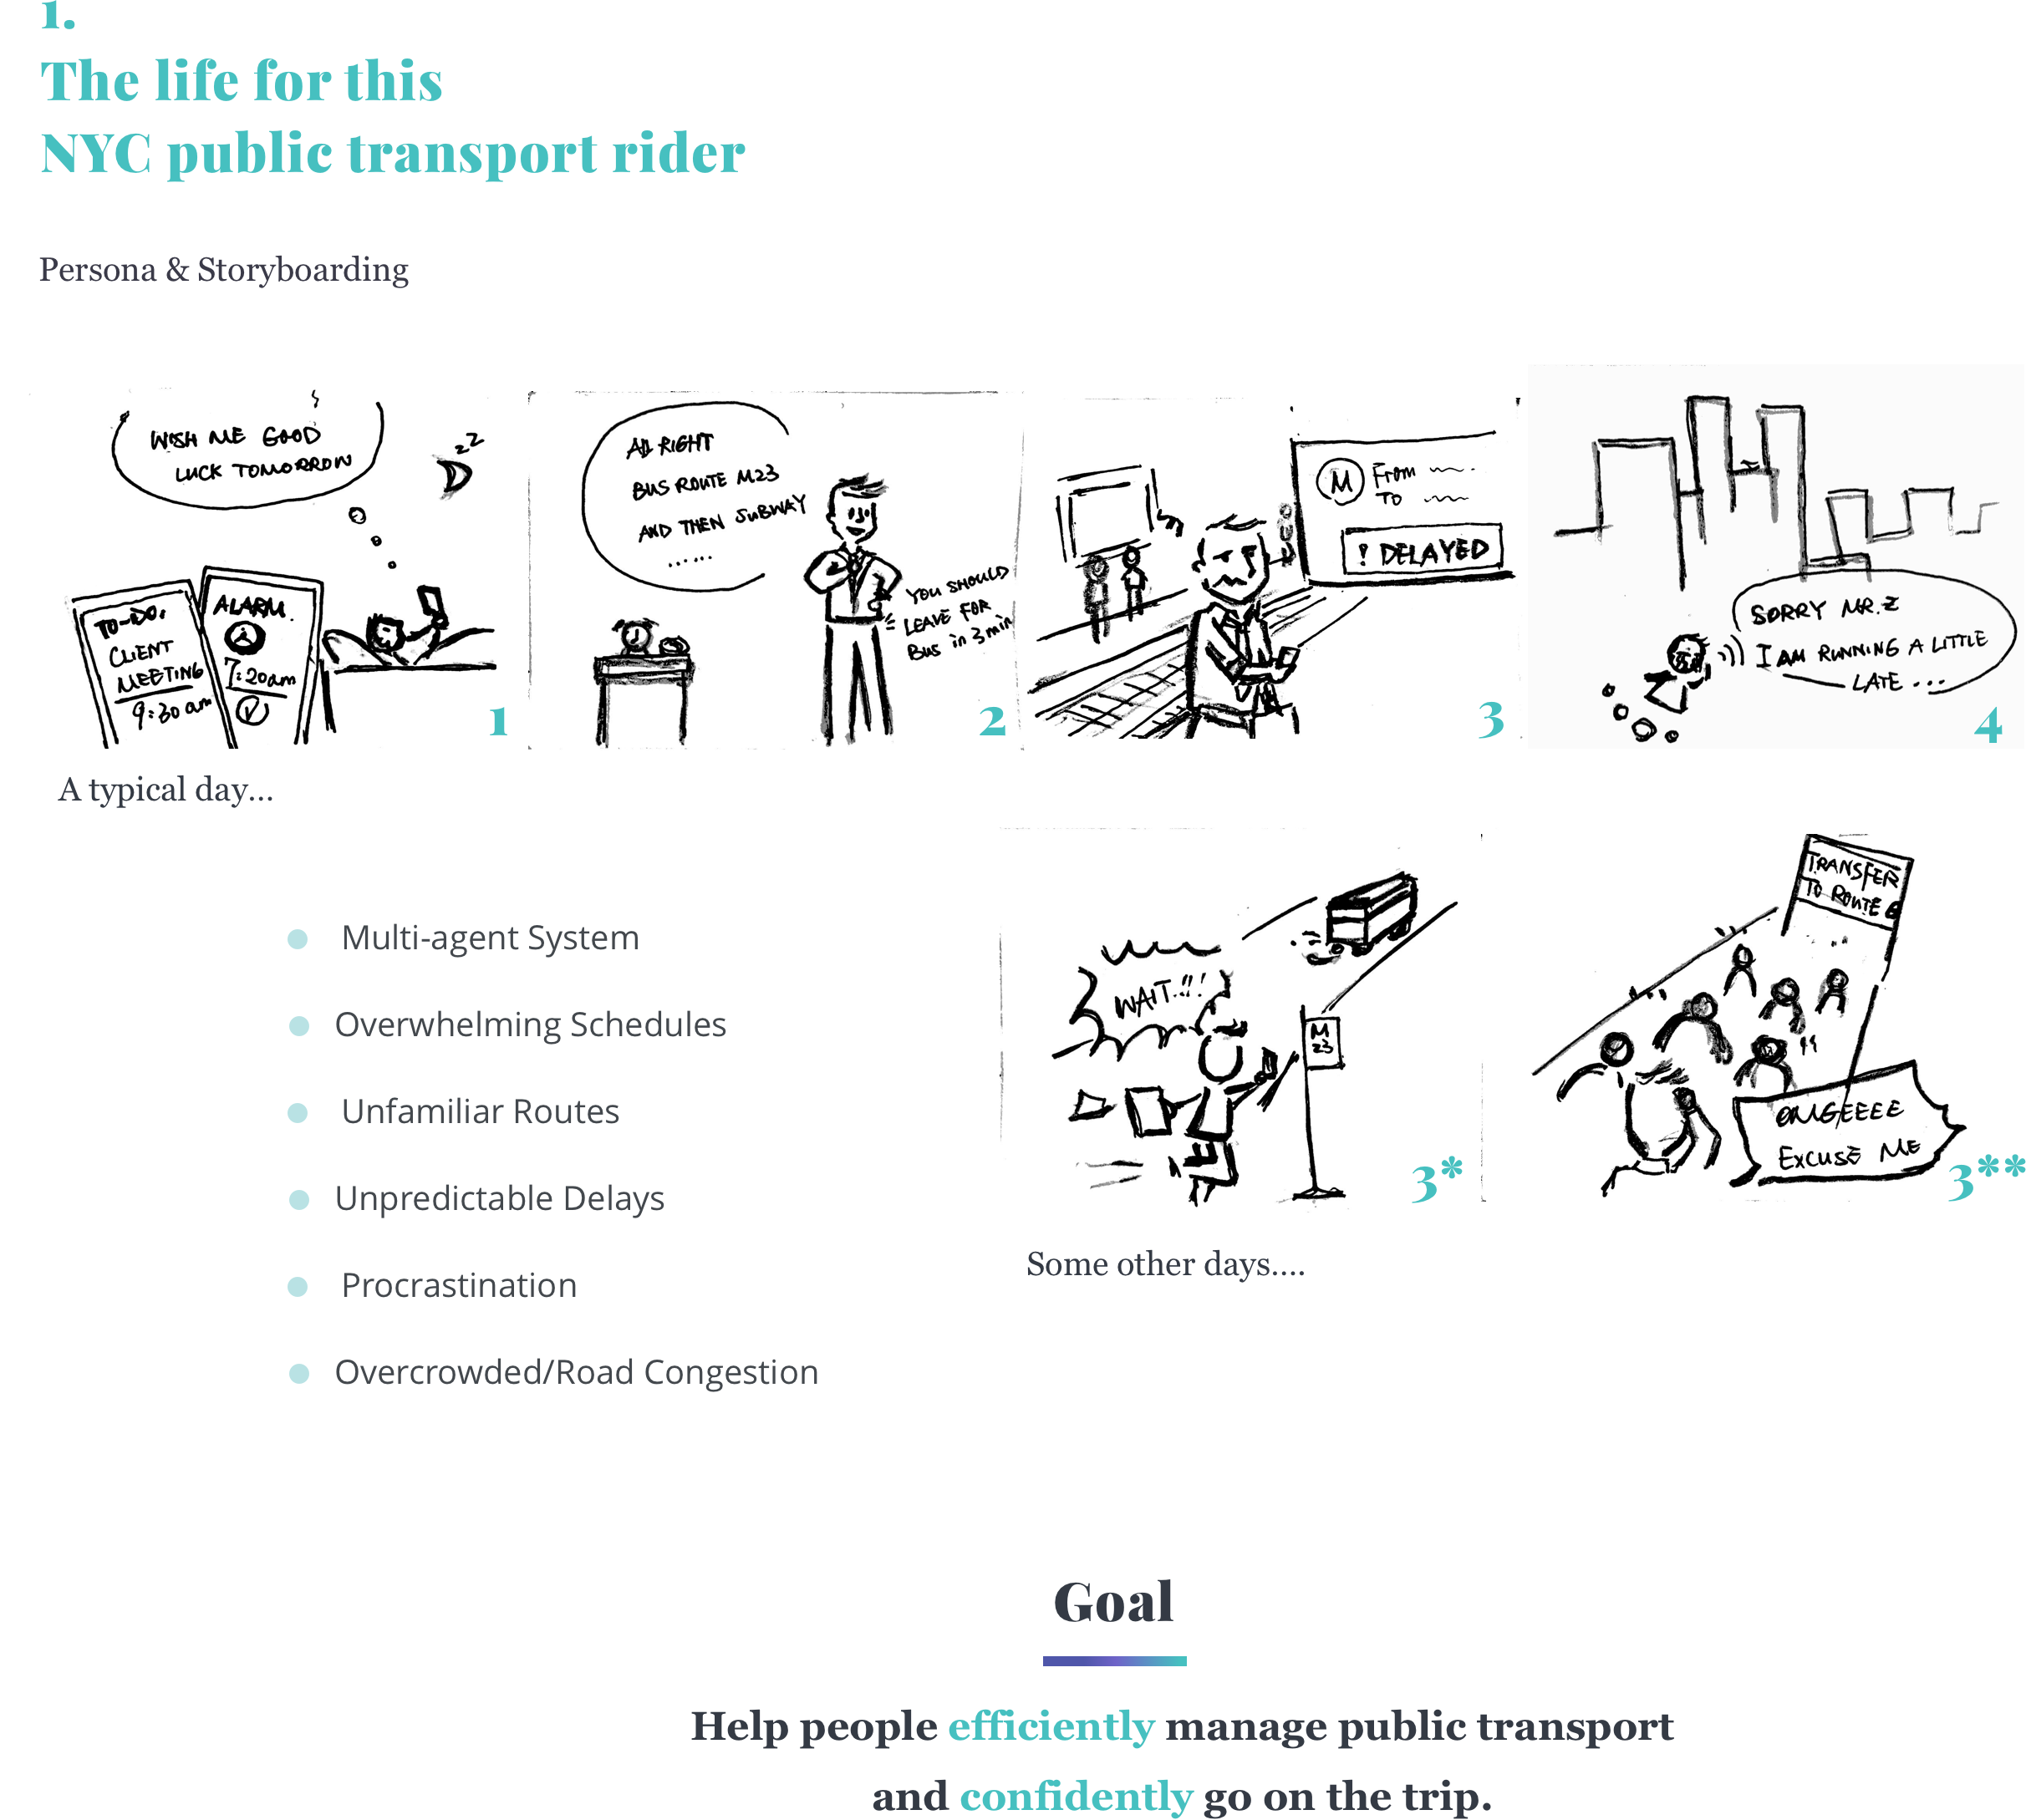 1.
The life for this
NYC public transport rider
Persona & Storyboarding
WISH ME GOOD
LUCK TOMORROW
zz
TO-DO:
CLIENT
MEETING
9:30 am
ALARM.
7:20am
1
ALL RIGHT
BUS ROUTE M23
AND THEN SUBWAY
......
YOU SHOULD
LEAVE FOR
BUS in 3 min
2
M From
TO
! DELAYED
3
SORRY MR. Z
I AM RUNNING A LITTLE
LATE ...
4
A typical day...
Multi-agent System
Overwhelming Schedules
Unfamiliar Routes
Unpredictable Delays
Procrastination
Overcrowded/Road Congestion
WAIT..!!!
M
23
3*
TRANSFER
TO ROUTE 6
OMGEEEE
EXCUSE ME
3**
Some other days....
Goal
Help people efficiently manage public transport
and confidently go on the trip.